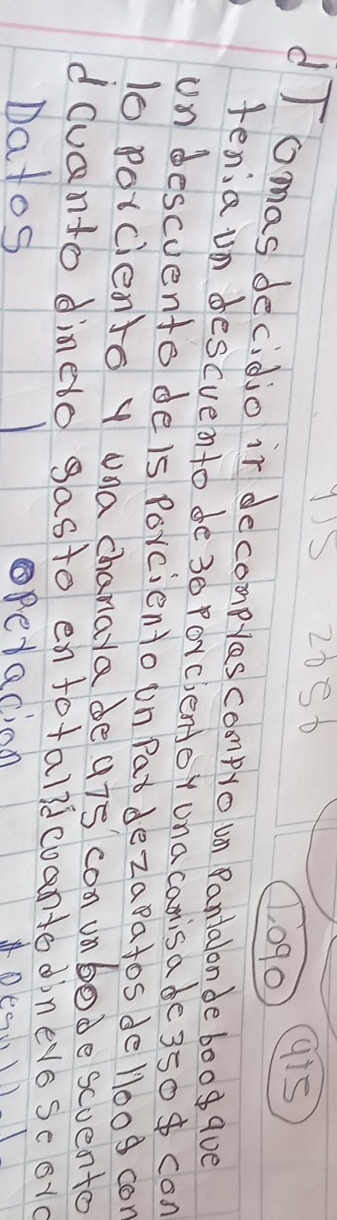 415 2656
1,090 415
d Tomas decidio ir de compras compro un Pantalon de 600$ que
tenia un descuento de 30 Porciento y una camisa de 350$ con
un descuento de 15 Porciento un Par de zapatos de 1100$ con
10 porciento y una chamara de 475 con un descuento
d cuanto dinero gasto en total?¿cuanto dinero se
Datos operacion